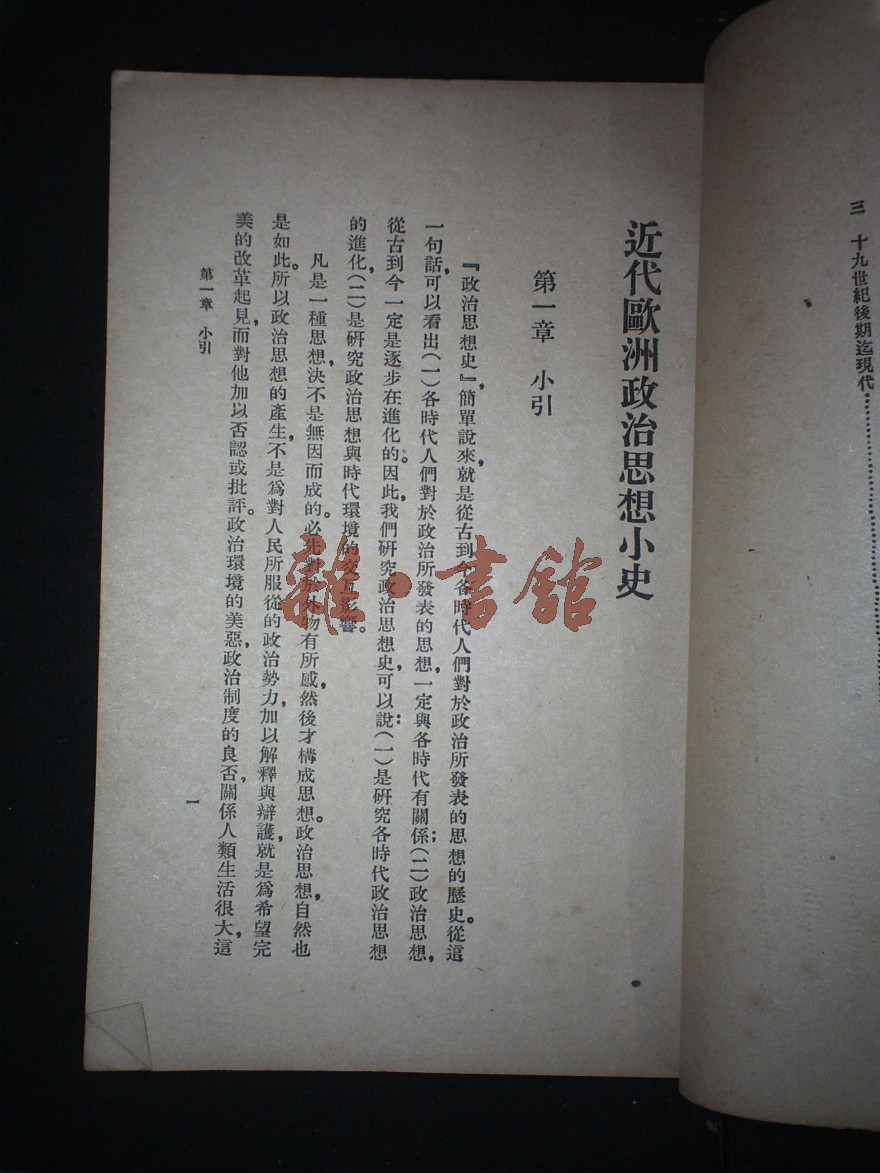 三 十九世紀後期迄現代
近代歐洲政治思想小史
第一章 小引
『政治思想史』，簡單說來，就是從古到今各時代人們對於政治所發表的思想的歷史。從這
一句話，可以看出（一）各時代人們對於政治所發表的思想，一定與各時代有關係；（二）政治思想，
從古到今一定是逐步在進化的。因此，我們研究政治思想史，可以說：（一）是研究各時代政治思想
的進化，（二）是研究政治思想與時代環境的交互影響。
凡是一種思想，決不是無因而成的。必先對於外物有所感，然後才構成思想。政治思想，自然也
是如此。所以政治思想的產生，不是爲對人民所服從的政治勢力，加以解釋與辯護，就是爲希望完
美的改革起見，而對他加以否認或批評。政治環境的美惡，政治制度的良否，關係人類生活很大，這
第一章 小引
一
雜·書館